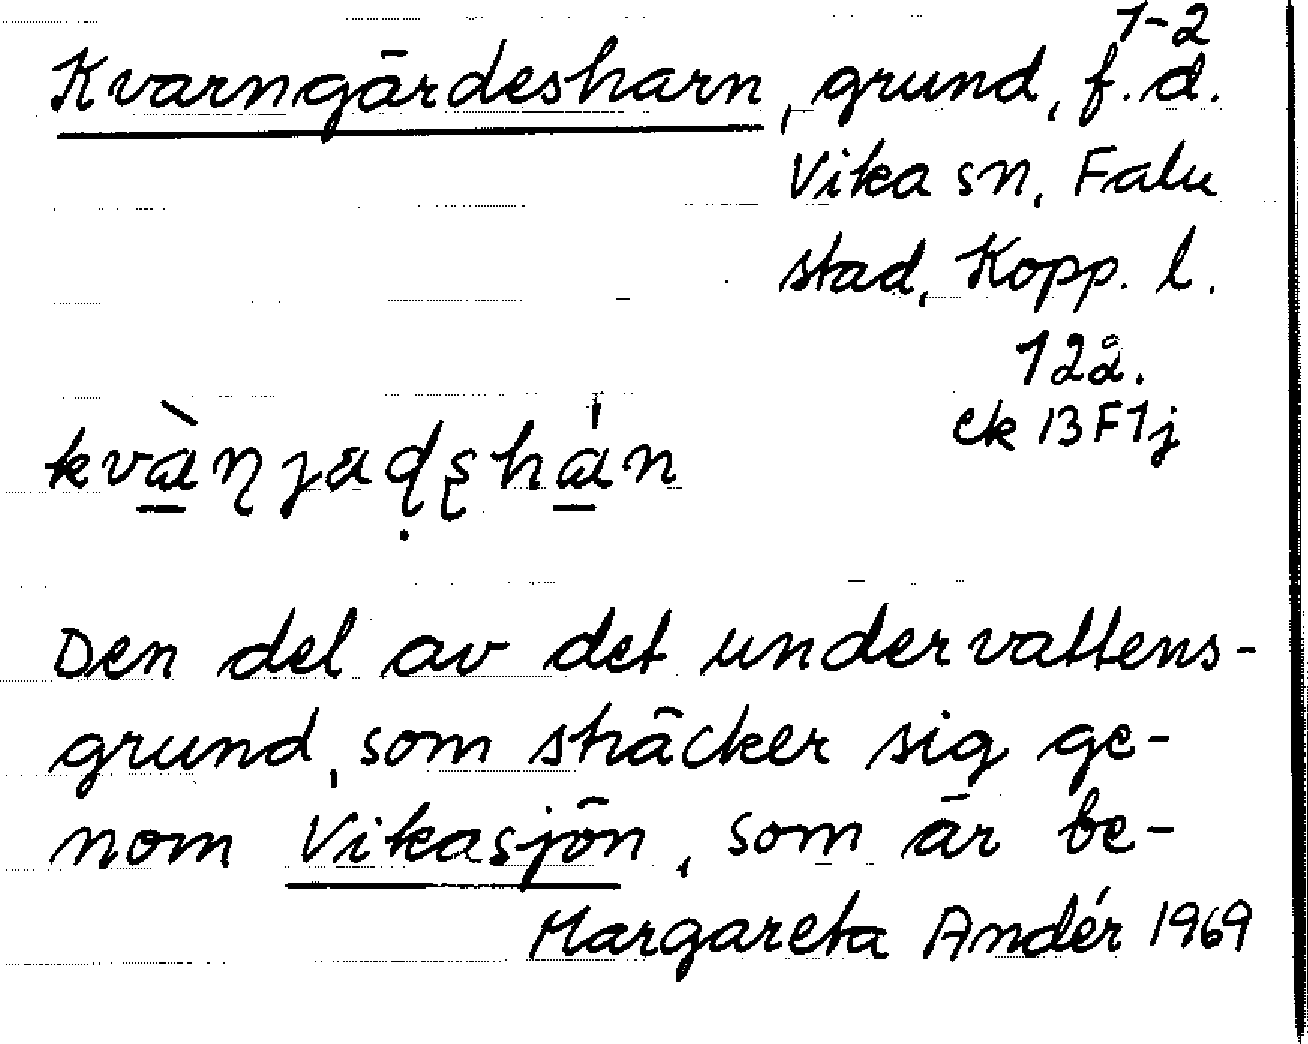 1-2
Kvarngärdesharn, grund, f.d.
Vika sn, Falu
stad, Kopp. l.
12å.
ek 13F1j
Den del av det undervattens-
grund, som sträcker sig ge-
nom Vikasjön, som är be-
Margareta Andér 1969